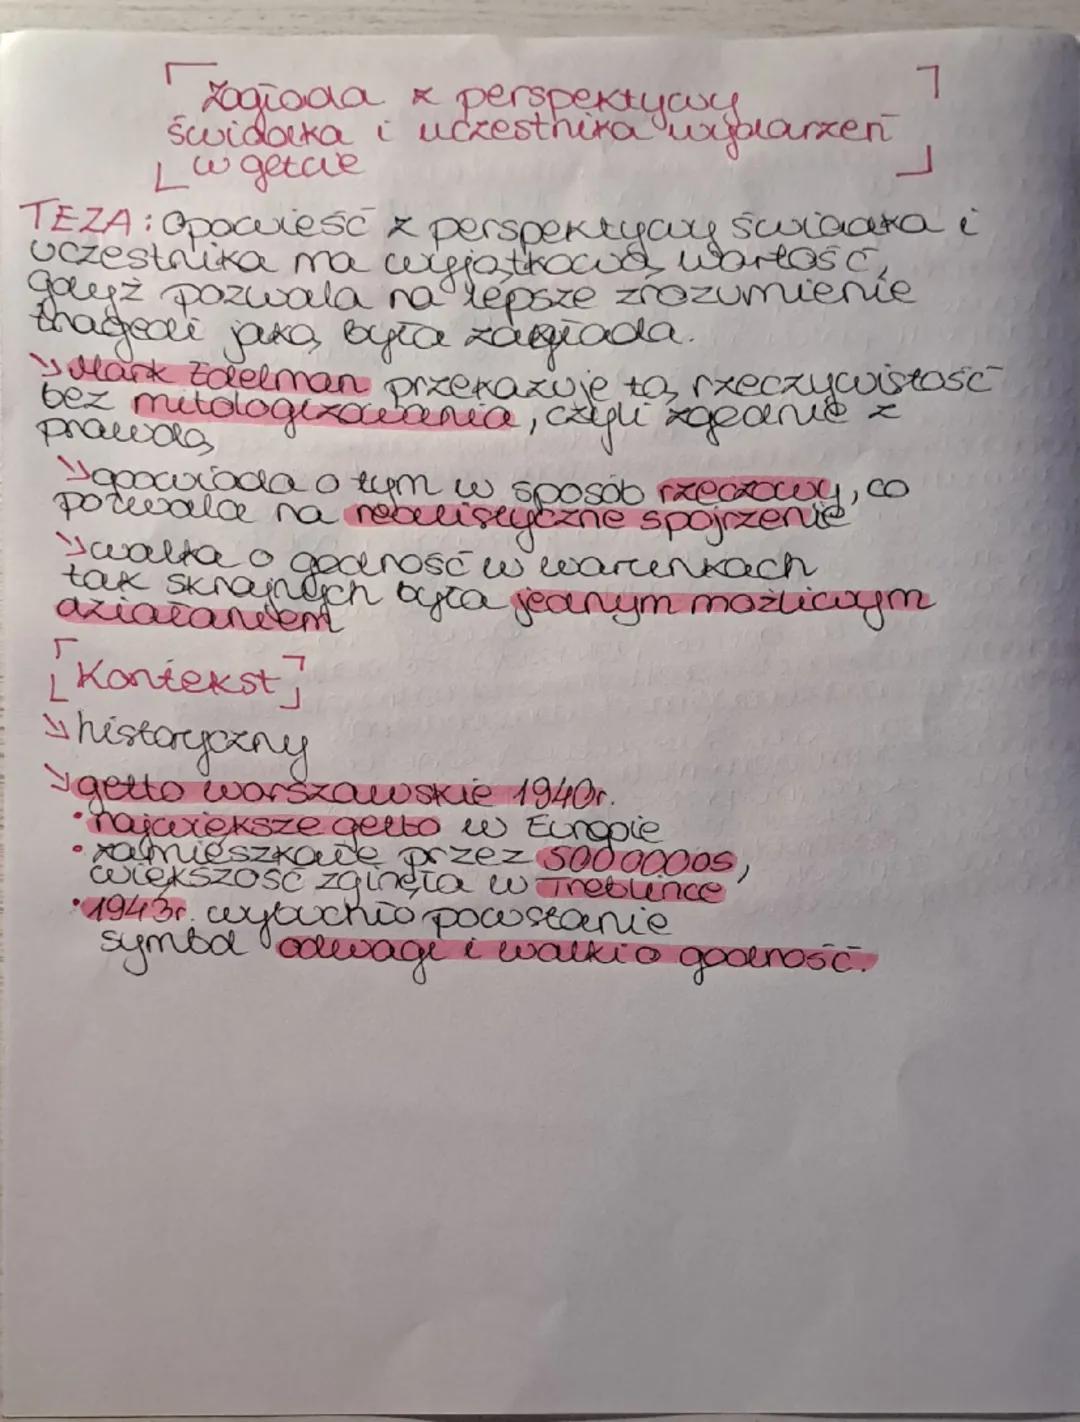 Zagłada z perspektywy
świadka i uczestnika wydarzeń
w getcie
TEZA: Opowieść z perspektywy świadka i
uczestnika ma wyjątkową wartość,
gdyż pozwala na lepsze zrozumienie
tragedi jaką była zagłada.
↘ Mark Edelman przekazuje tą rzeczywistość
bez mitologizowania, czyli zgodnie z
prawdą
↘ opowiada o tym w sposób rzeczowy, co
pozwala na realistyczne spojrzenie
↘ walka o godność w warunkach
tak skrajnych była jedynym możliwym
działaniem
Kontekst
↘ historyczny
↘ getto warszawskie 1940r.
• największe getto w Europie
• zamieszkałe przez 500 000 os,
większość zginęła w Treblince
• 1943r. wybuchło powstanie
symbol odwagi i walki o godność.